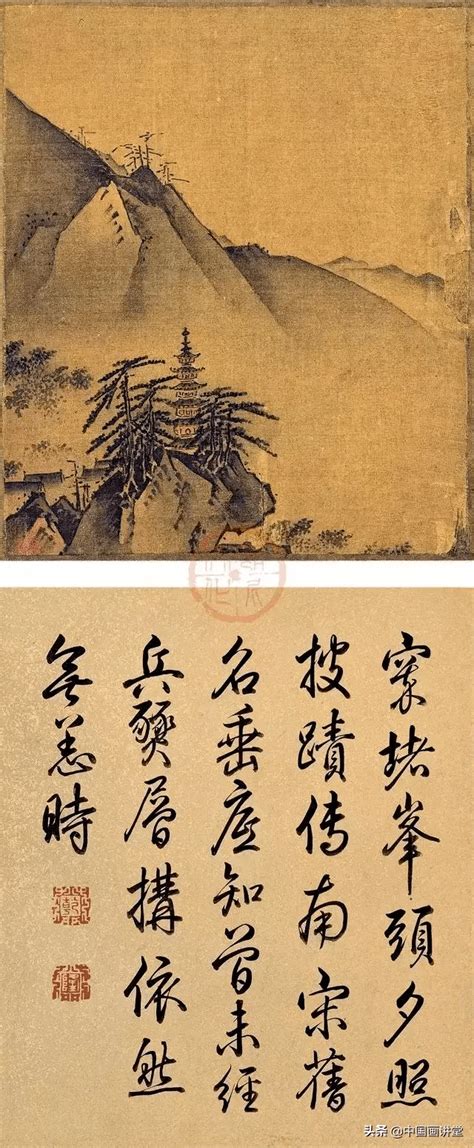 窣堵峯頭夕照
披蹟傳南宋舊
名垂底知曾未經
兵燹層構依然
無恙時
头条 @中国画讲堂